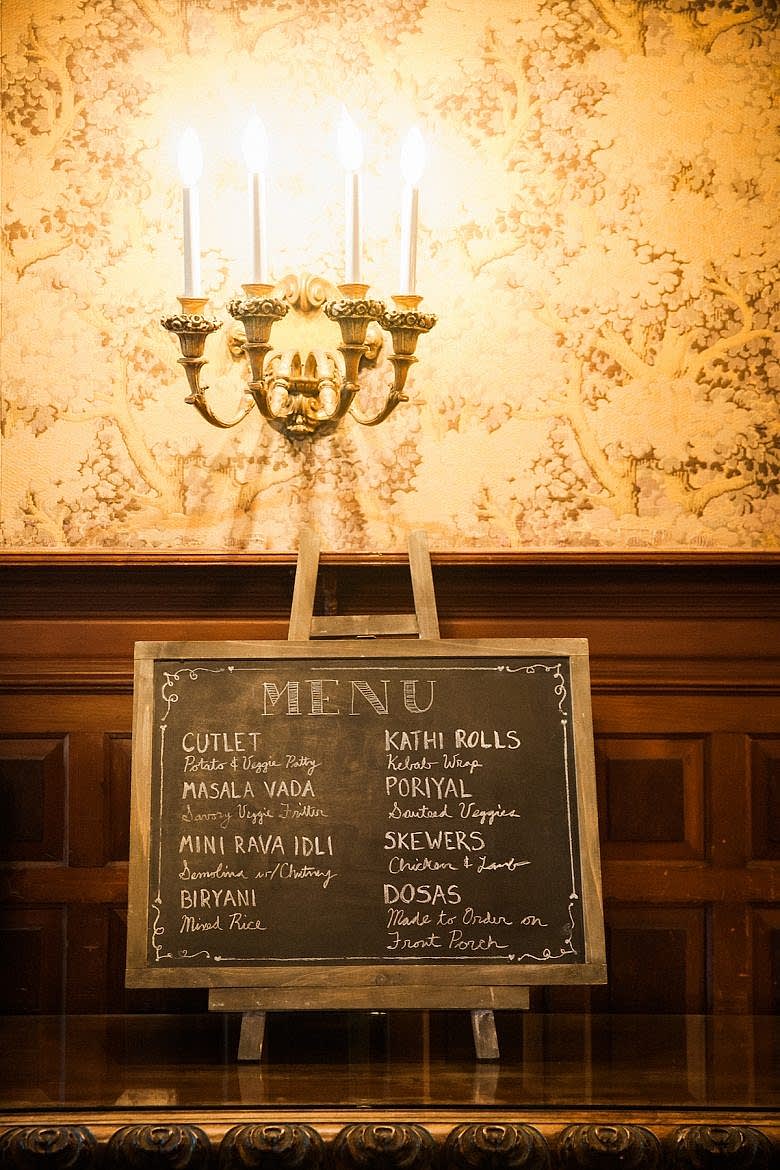 MENU
CUTLET
Potato & Veggie Patty
MASALA VADA
Savory Veggie Fritter
MINI RAVA IDLI
Semolina w/Chutney
BIRYANI
Mixed Rice
KATHI ROLLS
Kebab Wrap
PORIYAL
Sauteed Veggies
SKEWERS
Chicken & Lamb
DOSAS
Made to Order on
Front Porch